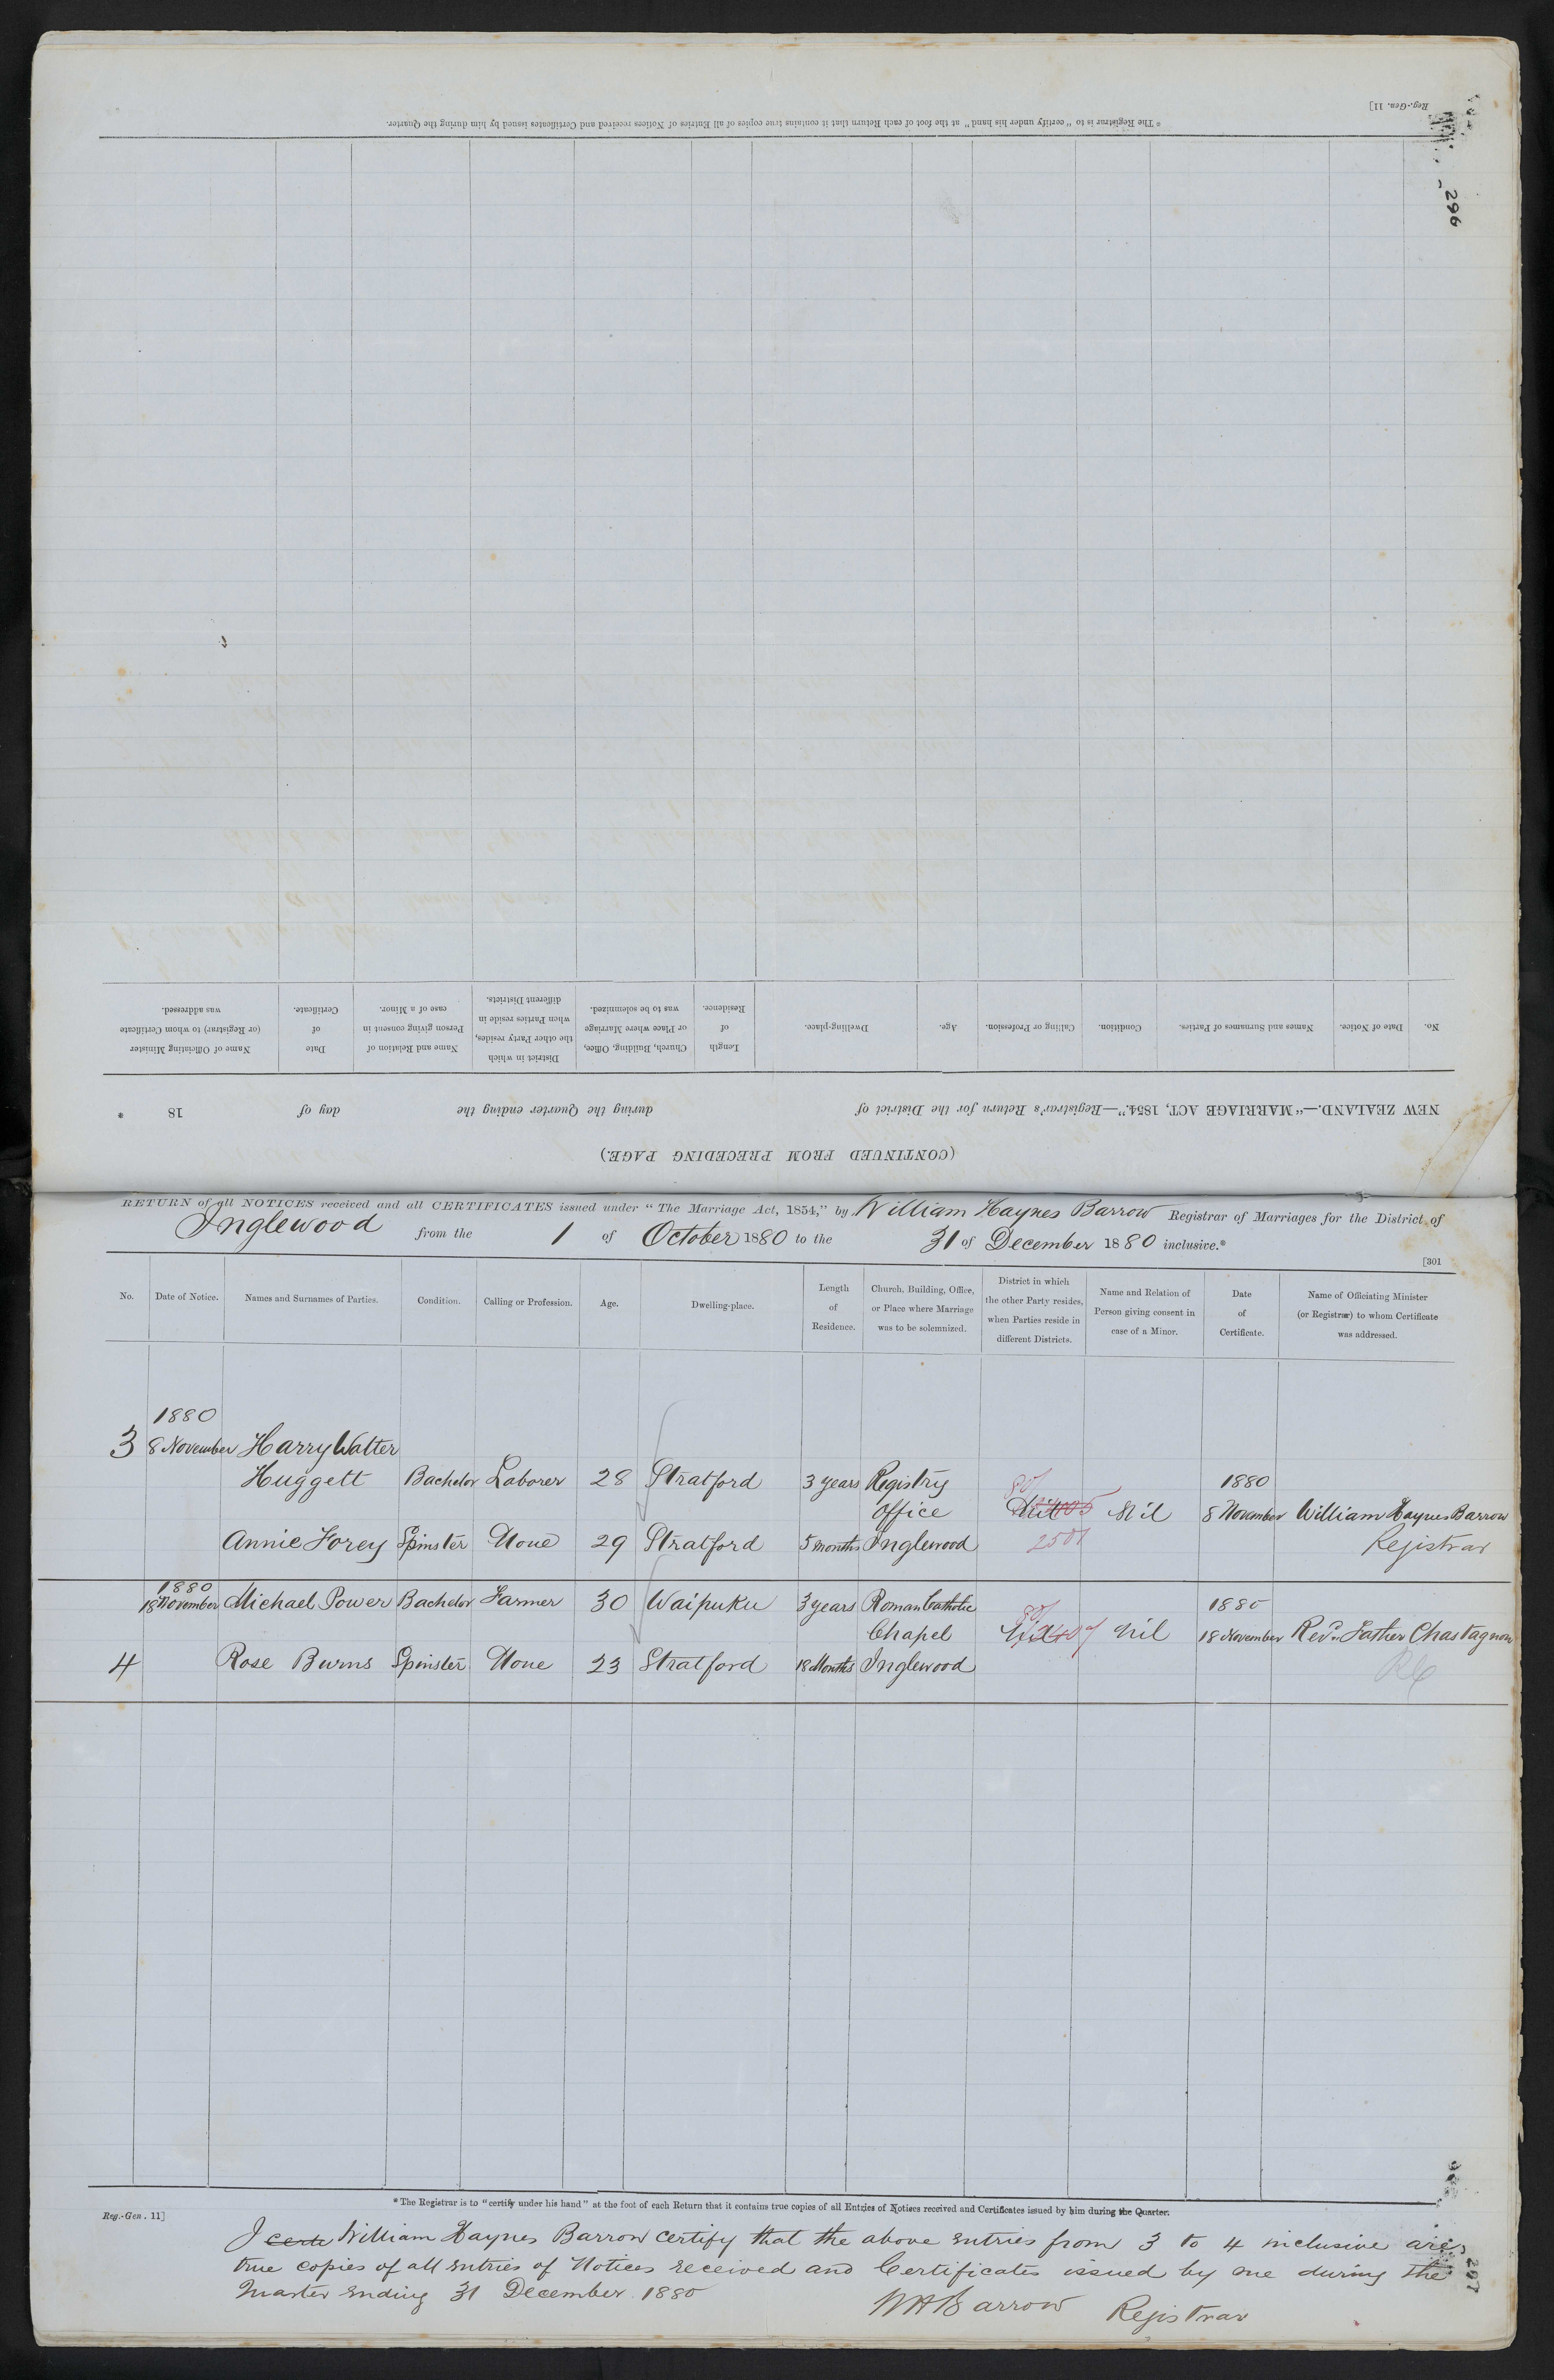 Reg.-Gen. 11]
* The Registrar is to "certify under his hand" at the foot of each Return that it contains true copies of all Entries of Notices received and Certificates issued by him during the Quarter.
296
No.
Date of Notice.
Names and Surnames of Parties.
Condition.
Calling or Profession.
Age.
Dwelling-place.
Length of Residence.
Church, Building, Office, or Place where Marriage was to be solemnized.
District in which the other Party resides, when Parties reside in different Districts.
Name and Relation of Person giving consent in case of a Minor.
Date of Certificate.
Name of Officiating Minister (or Registrar) to whom Certificate was addressed.
NEW ZEALAND.—"MARRIAGE ACT, 1854."—Registrar's Return for the District of during the Quarter ending the day of 18 *
(CONTINUED FROM PRECEDING PAGE.)
RETURN of all NOTICES received and all CERTIFICATES issued under "The Marriage Act, 1854," by William Haynes Barrow Registrar of Marriages for the District of
Inglewood from the 1 of October 1880 to the 31 of December 1880 inclusive.*
[301
No.
Date of Notice.
Names and Surnames of Parties.
Condition.
Calling or Profession.
Age.
Dwelling-place.
Length of Residence.
Church, Building, Office, or Place where Marriage was to be solemnized.
District in which the other Party resides, when Parties reside in different Districts.
Name and Relation of Person giving consent in case of a Minor.
Date of Certificate.
Name of Officiating Minister (or Registrar) to whom Certificate was addressed.
1880
3 8 November Harry Walter
Huggett Bachelor Laborer 28 Stratford 3 years Registry 80/ 1880
Office Nil Nil 8 November William Haynes Barrow
Annie Forey Spinster None 29 Stratford 5 months Inglewood 2501 Registrar
1880
18 November Michael Power Bachelor Farmer 30 Waipuku 3 years Roman Catholic 80/ 1880
Chapel Nil Nil 18 November Revd. Father Chastagnon
4 Rose Burns Spinster None 23 Stratford 18 Months Inglewood RC
* The Registrar is to "certify under his hand" at the foot of each Return that it contains true copies of all Entries of Notices received and Certificates issued by him during the Quarter.
Reg.-Gen. 11]
I certi William Haynes Barrow certify that the above entries from 3 to 4 inclusive are
true copies of all entries of Notices received and Certificates issued by me during the
Quarter ending 31 December 1880
WH Barrow Registrar
297